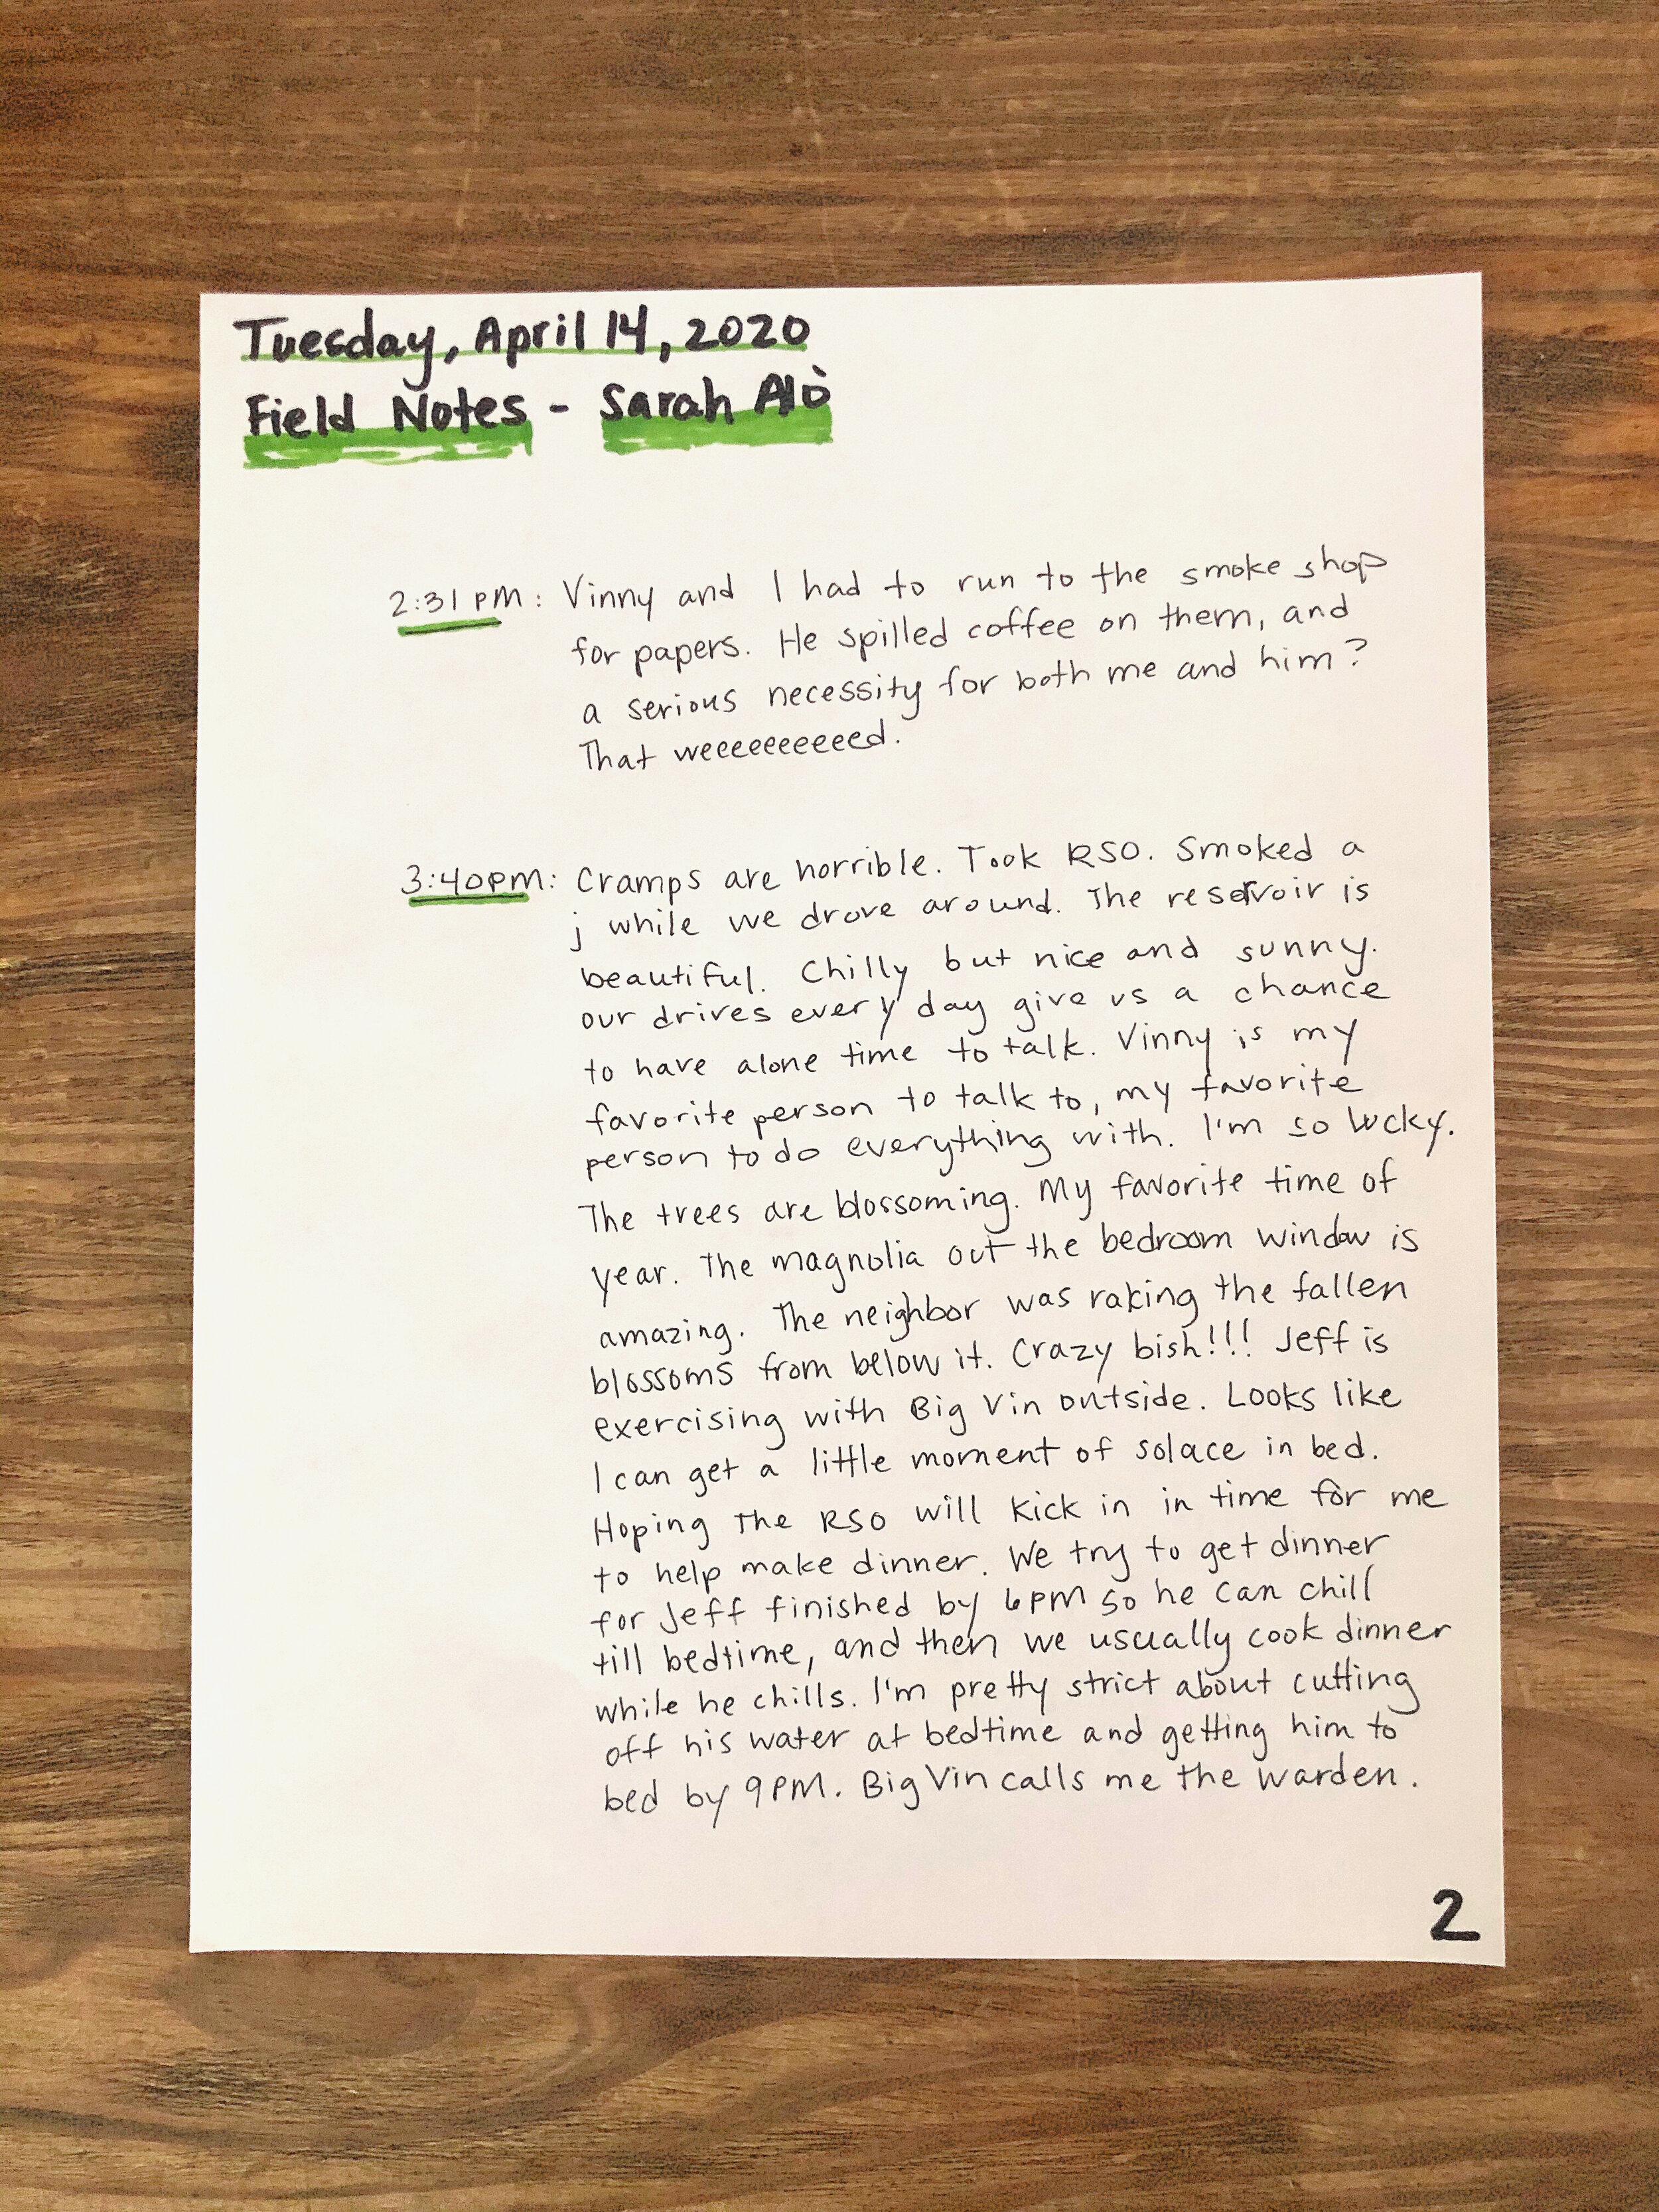 Tuesday, April 14, 2020
Field Notes - Sarah Alò
2:31 PM: Vinny and I had to run to the smoke shop
for papers. He spilled coffee on them, and
a serious necessity for both me and him?
That weeeeeeeeeed.
3:40PM: Cramps are horrible. Took RSO. Smoked a
j while we drove around. The reservoir is
beautiful. Chilly but nice and sunny.
our drives every day give us a chance
to have alone time to talk. Vinny is my
favorite person to talk to, my favorite
person to do everything with. I'm so lucky.
The trees are blossoming. My favorite time of
year. The magnolia out the bedroom window is
amazing. The neighbor was raking the fallen
blossoms from below it. Crazy bish!!! Jeff is
exercising with Big Vin outside. Looks like
I can get a little moment of solace in bed.
Hoping the RSO will kick in in time for me
to help make dinner. We try to get dinner
for Jeff finished by 6PM so he can chill
till bedtime, and then we usually cook dinner
while he chills. I'm pretty strict about cutting
off his water at bedtime and getting him to
bed by 9PM. Big Vin calls me the warden.
2